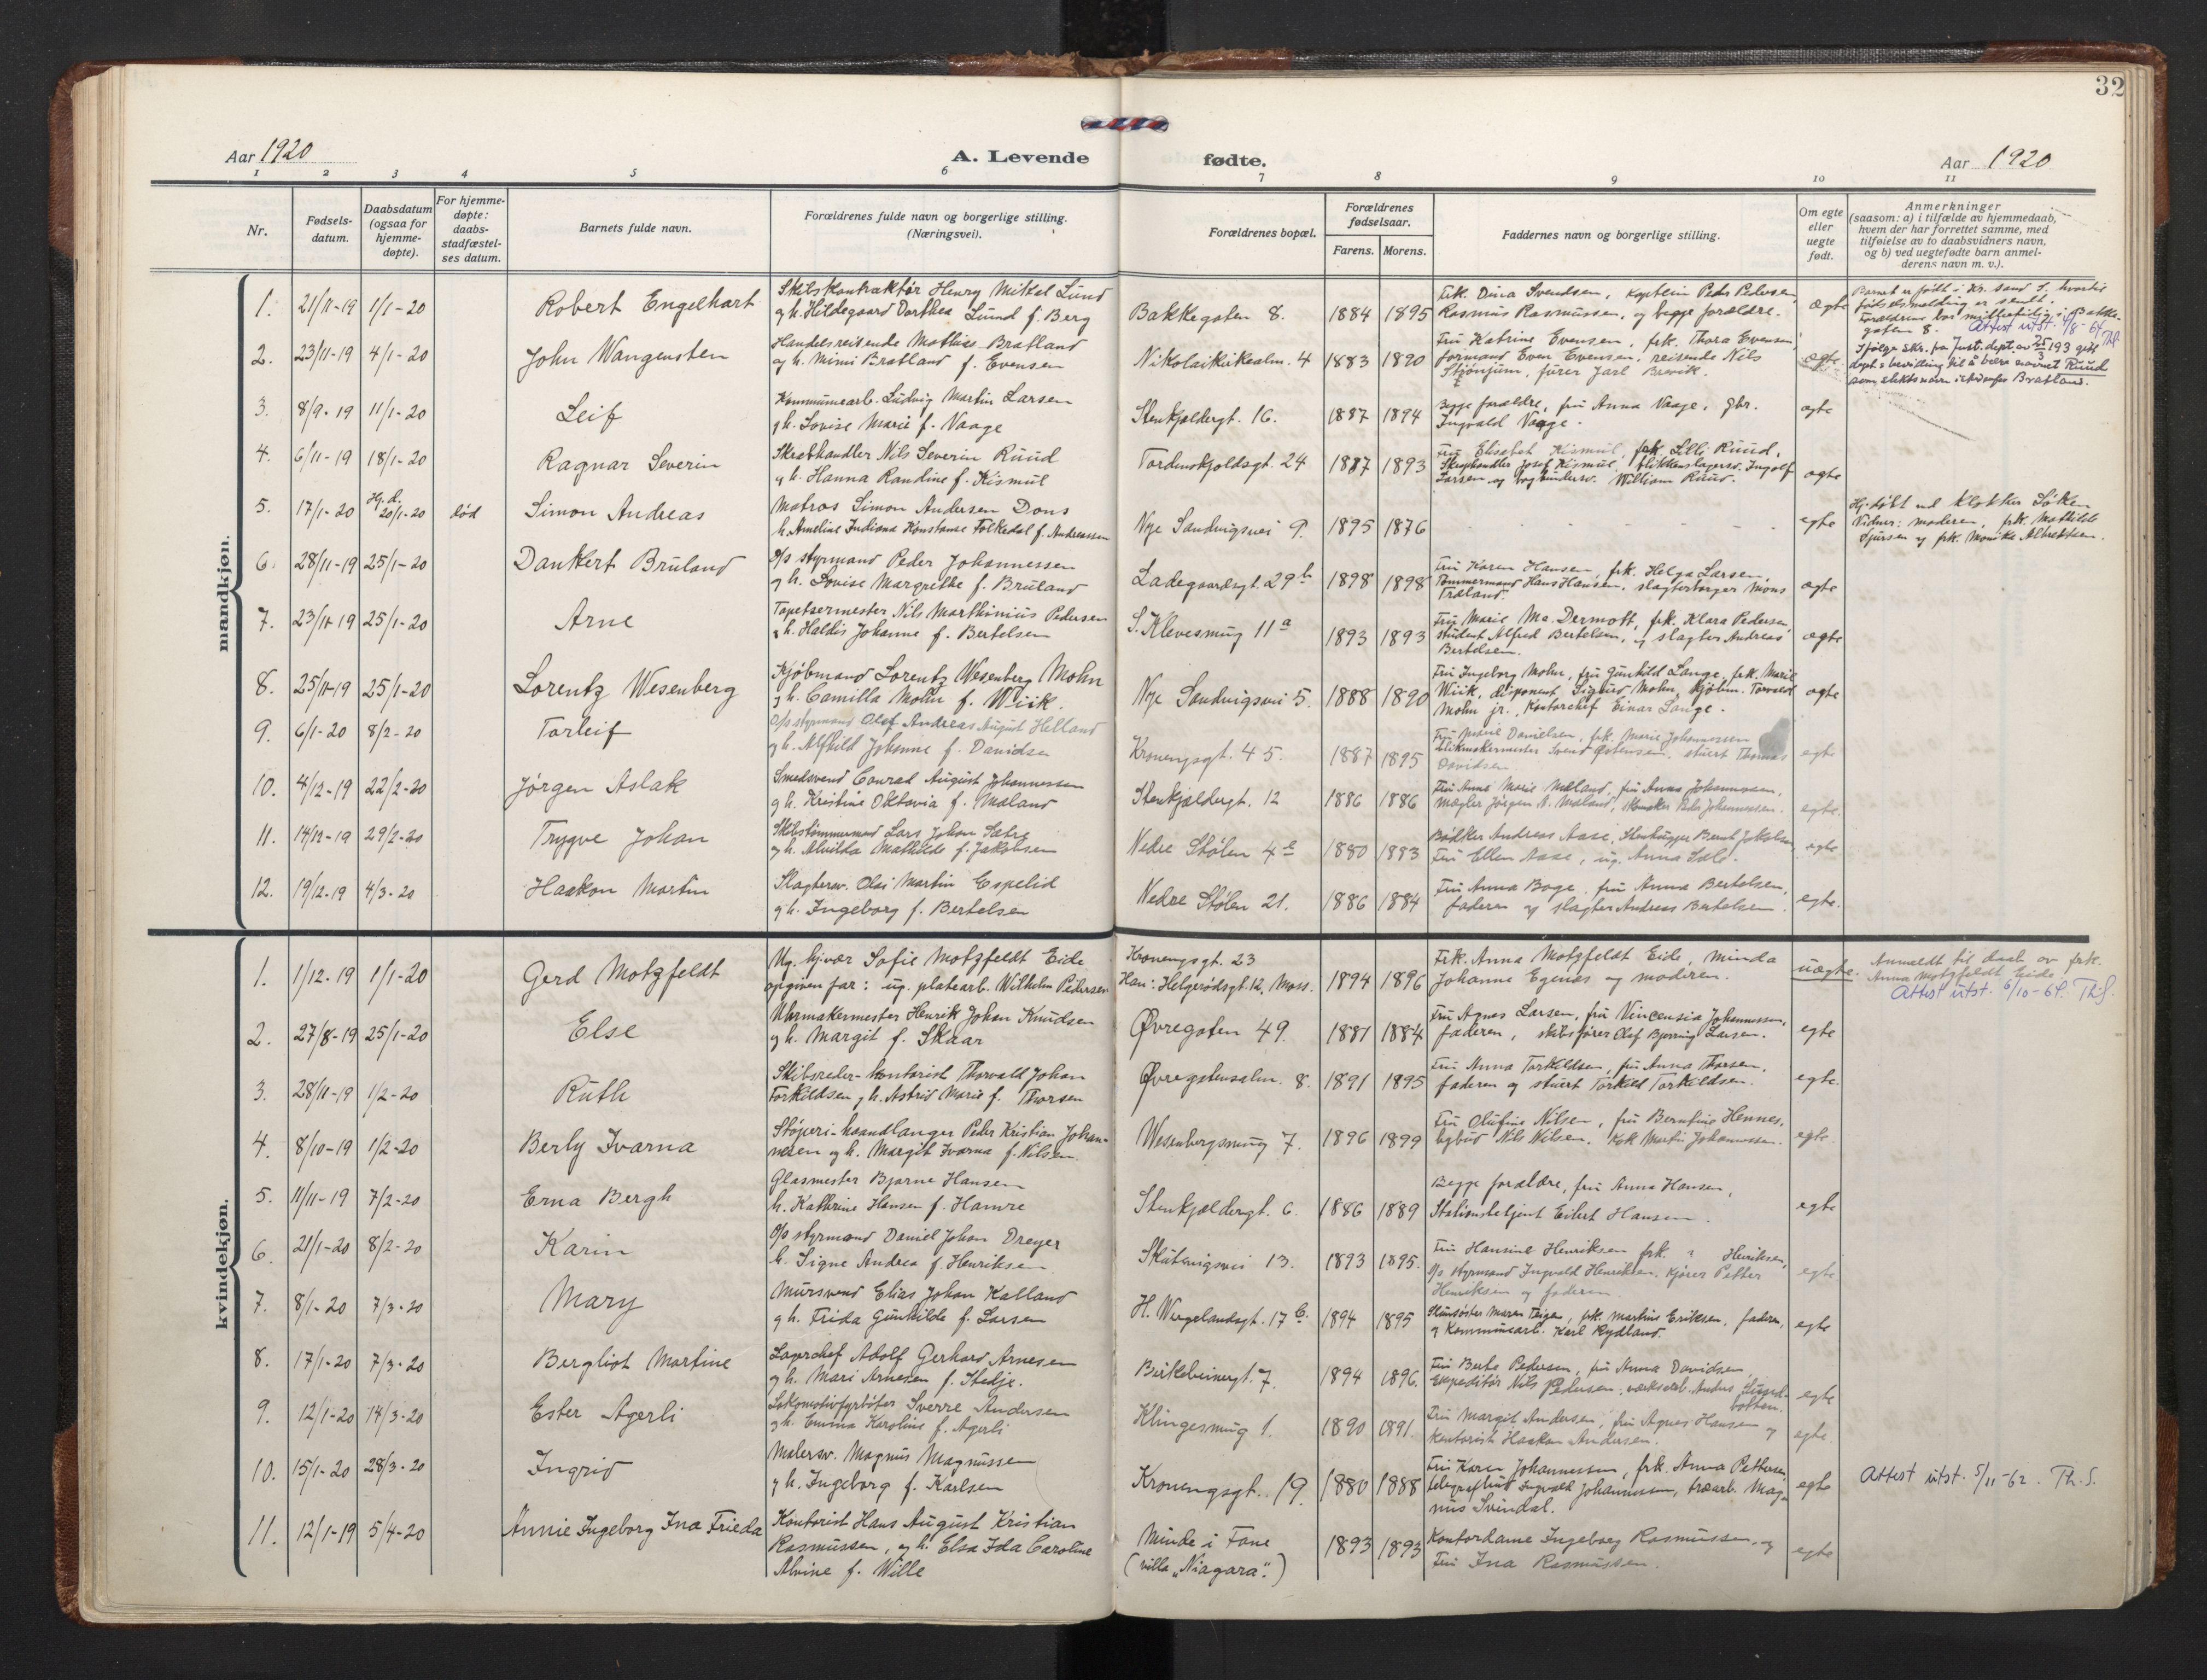 32
Aar 1920
A. Levende fødte.
Aar 1920
1 2 3 4 5 6 7 8 9 10 11
Nr.
Fødsels-
datum.
Daabsdatum
(ogsaa for
hjemme-
døpte).
For hjemme-
døpte:
daabs-
stadfæstel-
ses datum.
Barnets fulde navn.
Forældrenes fulde navn og borgerlige stilling.
(Næringsvei).
Forældrenes bopæl.
Forældrenes
fødselsaar.
Farens. Morens.
Faddernes navn og borgerlige stilling.
Om egte
eller
uegte
født.
Anmerkninger
(saasom: a) i tilfælde av hjemmedaab,
hvem der har forrettet samme, med
tilføielse av to daabsvidners navn,
og b) ved uegtefødte barn anmel-
derens navn m. v.).
mandkjøn.
1. 21/11-19 1/1-20 Robert Engelhart
Skibskontraktør Henry Mikal Lund
og h. Hildegaard Dorthea Lund f. Berg
Bakkegaten 8. 1884 1895
Frk. Dina Svendsen, kaptein Peder Pedersen,
Rasmus Rasmussen, og begge forældre.
ægte
Barnet er født i Kr. sand S. hvortil
fødselsmelding er sendt.
Forældrene bor midlertidig i Bakke-
gaten 8. Attest utst.
2. 23/11-19 4/1-20 John Wangensten
Handelsreisende Mathias Bratland
og h. Mimi Bratland f. Evensen
Nikolaikirkealm. 4 1883 1890
Fru Katrine Evensen, frk. Thora Evensen,
formand Even Evensen, reisende Nils
Stjønjum, fører Jarl Brevik.
egte
Ifølge skr. fra Just. dept. av 25/3 193 gitt
døpt. bevilling til å bære navnet Ruud
som slektsnavn istedenfor Bratland.
3. 8/9-19 11/1-20 Leif
Kommunearb. Ludvig Martin Larsen
og h. Lovise Marie f. Vaage
Stenkjeldergt. 16. 1887 1894
Begge forældre, fru Anna Vaage, gbr.
Ingvald Vaage.
egte
4. 6/11-19 18/1-20 Ragnar Severin
Skrabhandler Nils Severin Ruud
og h. Hanna Randine f. Kismul
Tordenskjoldsgt. 24 1887 1893
Fru Elisabet Kismul, frk. Lilli Ruud,
Skraphandler Josef Kismul, blikkenslagersv. Ingolf
Larsen og bogbindersv. William Ruud.
egte
5. 17/1-20 Hj. d.
20/1-20 død Simon Andreas
Matros Simon Andersen Dons
h. Ameline Indiana Konstanse Folkedal f. Andreassen
Nye Sandvigsvei 9. 1895 1876
- - -
egte
Hj. døbt ved klokker Søiken
Vidner: moderen, frk. Mathilde
Sjursen og frk. Monika Albrektsen.
6. 28/11-19 25/1-20 Dankert Bruland
O/s styrmand Peder Johannessen
og h. Lovise Margrethe f. Bruland
Ladegaardsgt. 29 b 1898 1898
Fru Karen Hansen, frk. Helga Larsen,
Tømmermand Hans Hansen, slagterborger Mons
Træland.
egte
7. 23/11-19 25/1-20 Arne
Tapetsermester Nils Marthinius Pedersen
og h. Haldis Johanne f. Bertelsen
S. Klevesmug 11 a 1893 1893
Fru Marie Mc. Dermott, frk. Klara Pedersen,
student Alfred Bertelsen, og slagter Andreas
Bertelsen.
egte
8. 25/11-19 25/1-20 Lorentz Wesenberg
Kjøbmand Lorentz Wesenberg Mohn
og h. Camilla Mohn f. Wiik.
Nye Sandvigsvei 5. 1888 1890
Fru Ingeborg Mohn, fru Gunhild Lange, frk. Marie
Wiik, disponent Sigurd Mohn, kjøbm. Torvald
Mohn jr., Kontorchef Einar Lange.
egte
9. 6/1-20 8/2-20 Torleif
O/s styrmand Olaf Andreas August Helland
og h. Alfhild Johanne f. Davidsen
Kronengsgt. 45. 1887 1895
Fru Marie Danielsen, frk. Marie Johannessen
Blikmakermester Svend Østensen, stuert Thomas
Davidsen.
egte
10. 4/12-19 22/2-20 Jørgen Aslak
Smedsvend Conrad August Johannessen
og h. Kristine Oktavia f. Mæland
Stenkjeldergt. 12 1886 1886
Fru Anna Marie Mæland, fru Anna Johannessen,
mægler Jørgen A. Mæland, skomaker Peder Johannessen.
egte.
11. 14/12-19 29/2-20 Trygve Johan
Skibstømmermand Lars Johan Sætre
og h. Alvilda Mathilde f. Jakobsen
Nedre Stølen 4 e 1880 1883
Bødker Andreas Aase, Stenhugger Bernt Jakobsen
Fru Ellen Aase, ug. Anna Sæle.
egte
12. 19/12-19 4/3-20 Haakon Martin
Slagtersv. Olai Martin Espelid
og h. Ingeborg f. Bertelsen
Nedre Stølen 21. 1886 1884
Fru Anna Boge, fru Anna Bertelsen,
faderen og slagter Andreas Bertelsen.
egte.
kvindekjøn.
1. 1/12-19 1/1-20 Gerd Motzfeldt
Ug. hj.vær Sofie Motzfeldt Eide
opgiven far: ug. platearb. Wilhelm Pedersen
Kronengsgt. 23
Han: Helgerødsgt 12, Moss. 1894 1896
Frk. Anna Motzfeldt Eide, Minda
Johanne Egenæs og moderen.
uægte.
Anmeldt til daab av frk.
Anna Motzfeldt Eide.
Attest utst. 6/10-64. Th.S.
2. 27/8-19 25/1-20 Else
Uhrmakermester Henrik Johan Knudsen
og h. Margit f. Skaar
Øvregaten 49. 1881 1884
Fru Agnes Larsen, fru Vincensia Johannessen,
faderen, skibsfører Olaf Bjørring Larsen.
egte
3. 28/11-19 1/2-20 Ruth
Skibsreder-kontorist Thorvald Johan
Torkildsen, og h. Astrid Marie f. Thorsen
Øvregatensalm. 8. 1891 1895
Fru Anna Torkildsen, fru Anna Thorsen,
faderen og stuert Torkild Torkildsen.
egte.
4. 8/10-19 1/2-20 Berly Ivarna
Støperi-haandlanger Peder Kristian Johan-
nesen og h. Margit Ivarna f. Nilsen
Wesenbergsmug 7. 1896 1899
Fru Olufine Nilsen, fru Berntine Hennes,
bybud Nils Nilsen, Kok Martin Johannessen.
egte.
5. 11/11-19 7/2-20 Erna Bergh
Glasmester Bjarne Hansen
h. Kathrine Hansen f. Hamre
Stenkjeldergt. 6. 1886 1889
Begge forældre, fru Anna Hansen,
Stationsbetjent Eilert Hansen.
egte
6. 21/1-20 8/2-20 Karin
O/s styrmand Daniel Johan Dreyer
h. Signe Andrea f. Henriksen
Skutevigsvei 13. 1893 1895.
Fru Hansine Henriksen frk. " Henriksen,
O/s styrmand Ingvald Henriksen, kjører Petter
Henriksen og faderen.
egte
7. 8/1-20 7/3-20 Mary
Mursvend Elias Johan Kalland
og h. Frida Gunhilde f. Larsen
H. Wergelandsgt. 17 C. 1894 1895
Maren Teigen, frk. Martine Eriksen, faderen,
og Kommunearb. Karl Rydland.
egte
8. 17/1-20 7/3-20 Bergliot Martine
Lagerchef Adolf Gerhard Arnesen
og h. Mari Arnesen f. Stedje.
Birkebeinergt. 7. 1894 1896.
Fru Berta Pedersen, fru Anna Davidsen,
Ekspeditør Nils Pedersen, verksarb. Anders
botten.
egte
9. 12/1-20 14/3-20 Ester Agerli
Lokomotivfyrbøter Sverre Andersen
og h. Emma Karoline f. Agerli
Klingesmug 1. 1890 1891.
Fru Margit Andersen, fru Agnes Hansen og
kontorist Haakon Andersen.
egte
10. 15/1-20 28/3-20 Ingrid
Malersv. Magnus Magnussen
og h. Ingeborg f. Karlsen
Kronengsgt. 19. 1880 1888
Fru Karen Johannessen, frk. Anna Pettersen,
telegrafbud Ingvald Johannessen, træarb. Mag-
nus Svindal.
egte
Attest utst. 5/11-62. Th.S.
11. 12/1-19 5/4-20 Annie Ingeborg Ina Frieda
Kontorist Hans August Kristian
Rasmussen, og h. Elsa Ida Caroline
Alvine f. Wille
Minde i Fane
(villa „Niagara".) 1893 1893
Kontordame Ingeborg Rasmussen, og
Fru Ina Rasmussen.
egte